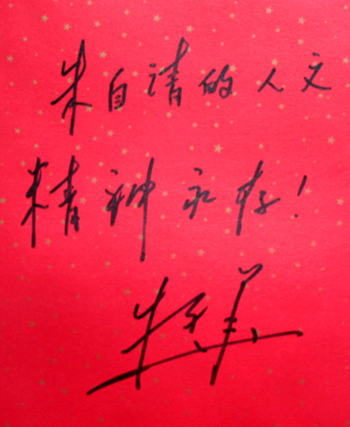 朱自清的人文
精神永存!